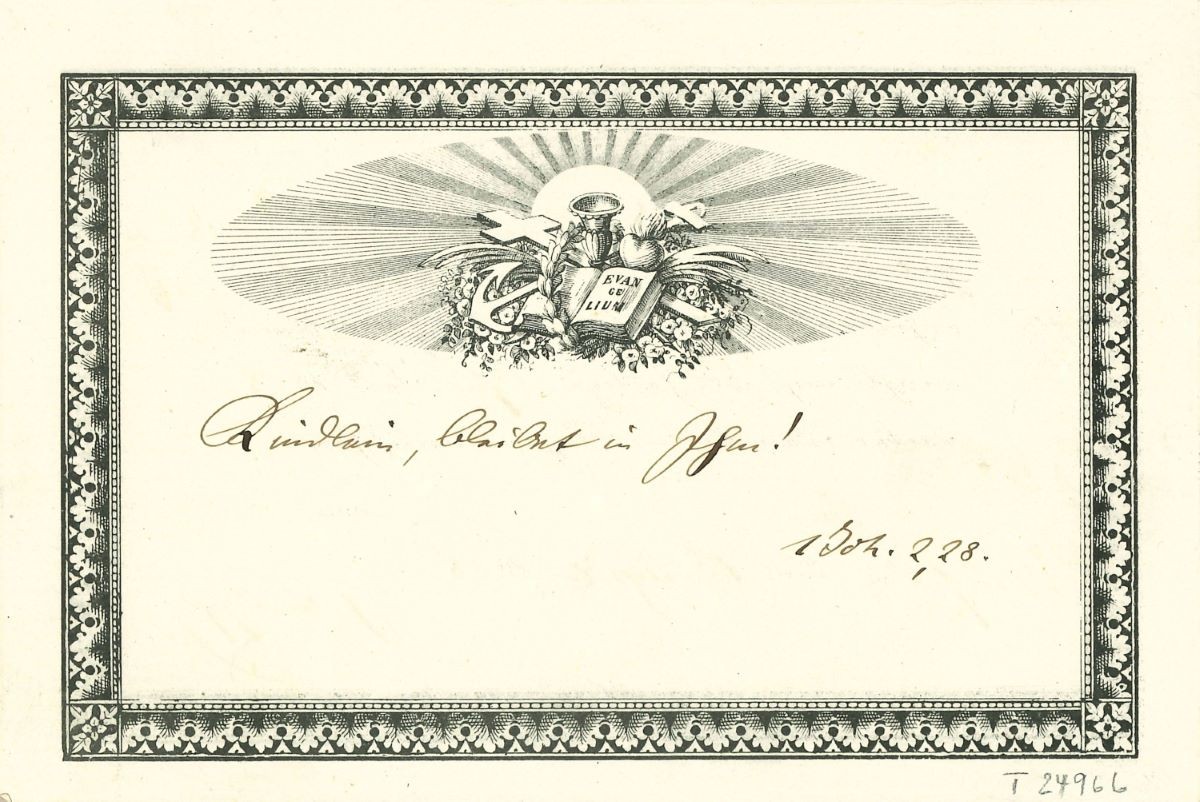 EVAN
GE
LIUM
Kindlein, bleibet in Ihm!
1 Joh. 2,28.
T 24966